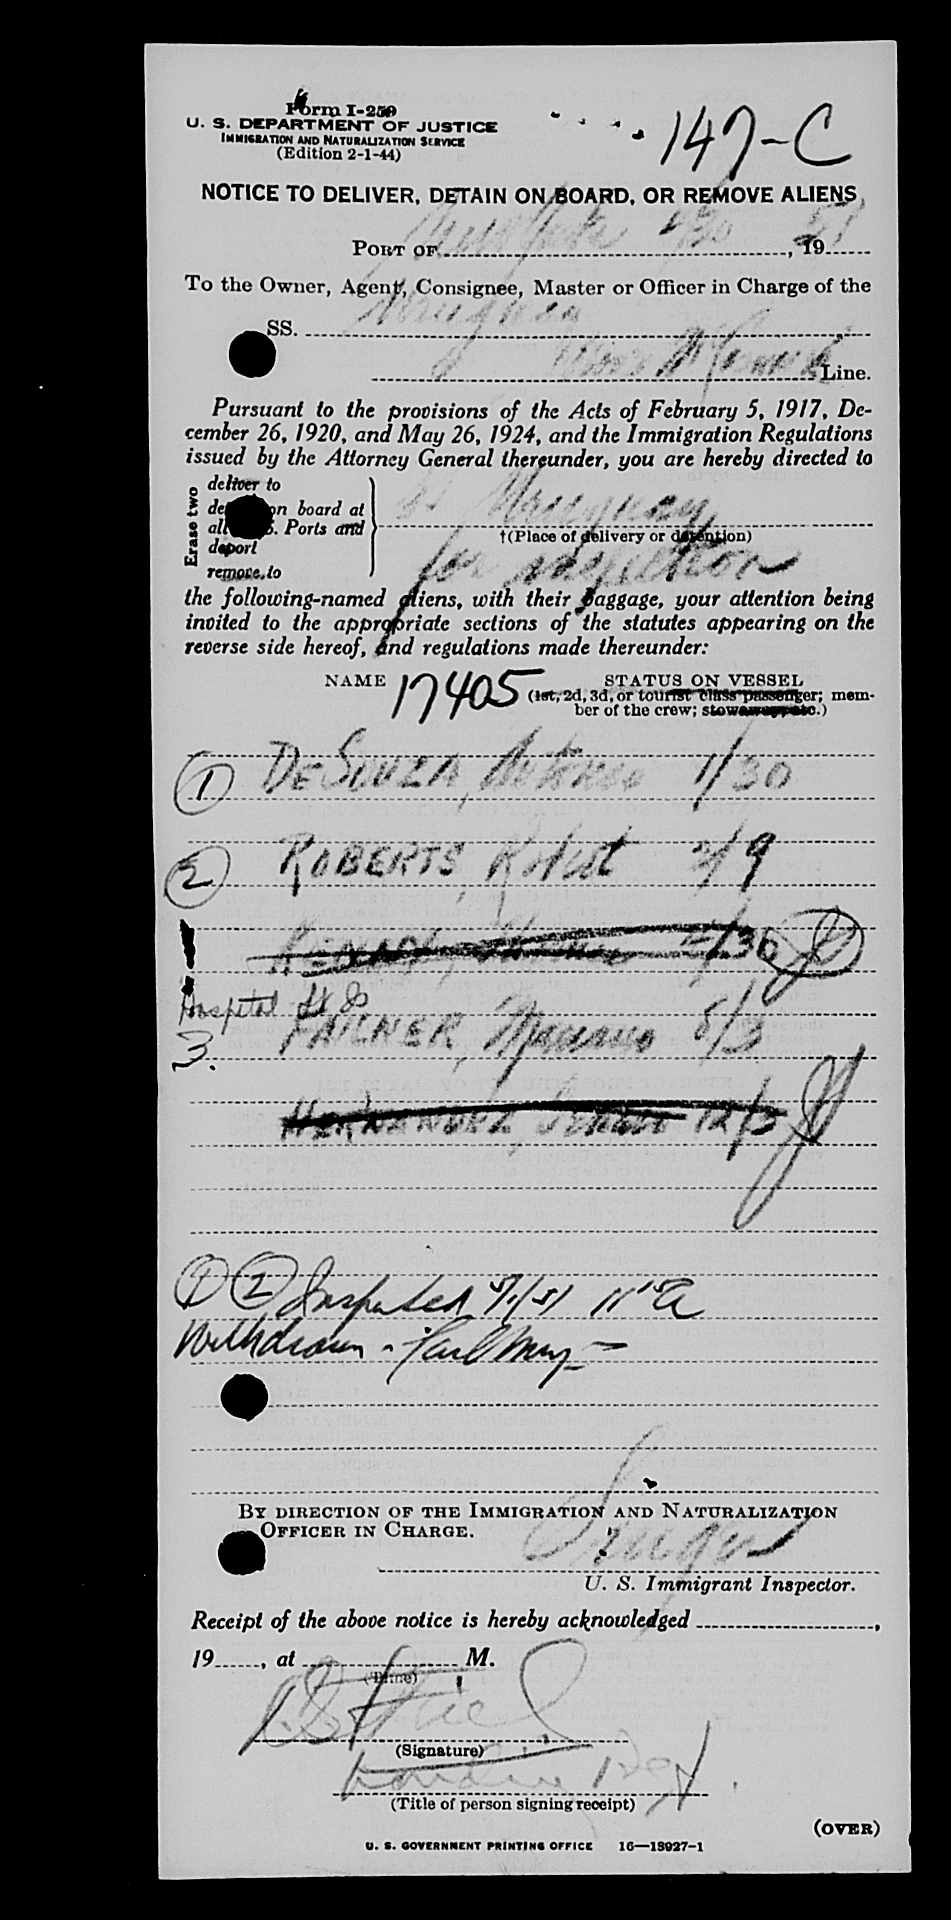 Form I-259
147-C
U. S. DEPARTMENT OF JUSTICE
IMMIGRATION AND NATURALIZATION SERVICE
(Edition 2-1-44)
NOTICE TO DELIVER, DETAIN ON BOARD, OR REMOVE ALIENS
PORT OF New York 4/30, 1951
To the Owner, Agent, Consignee, Master or Officer in Charge of the
SS. Uruguay
Moore McCormack Line.
Pursuant to the provisions of the Acts of February 5, 1917, De-
cember 26, 1920, and May 26, 1924, and the Immigration Regulations
issued by the Attorney General thereunder, you are hereby directed to
Erase two
deliver to
on board at
S. Ports and
deport
remove to
Uruguay
†(Place of delivery or detention)
for inspection
the following-named aliens, with their baggage, your attention being
invited to the appropriate sections of the statutes appearing on the
reverse side hereof, and regulations made thereunder:
NAME 17405 STATUS ON VESSEL
(1st, 2d, 3d, or tourist class passenger; mem-
ber of the crew; stowaway, etc.)
1 DESOUZA, Antonio 1/30
2 ROBERTS, Robert 2/9
Hospital
3. FAILNER, Mariano 5/3
HERNANDEZ, 12/3
1 2 Inspected 5/1/51 11 15 A
Withdrawn - Carl May
BY DIRECTION OF THE IMMIGRATION AND NATURALIZATION
OFFICER IN CHARGE.
U. S. Immigrant Inspector.
Receipt of the above notice is hereby acknowledged ,
19 , at M.
(Time)
(Signature)
(Title of person signing receipt)
(OVER)
U. S. GOVERNMENT PRINTING OFFICE 16—13927-1